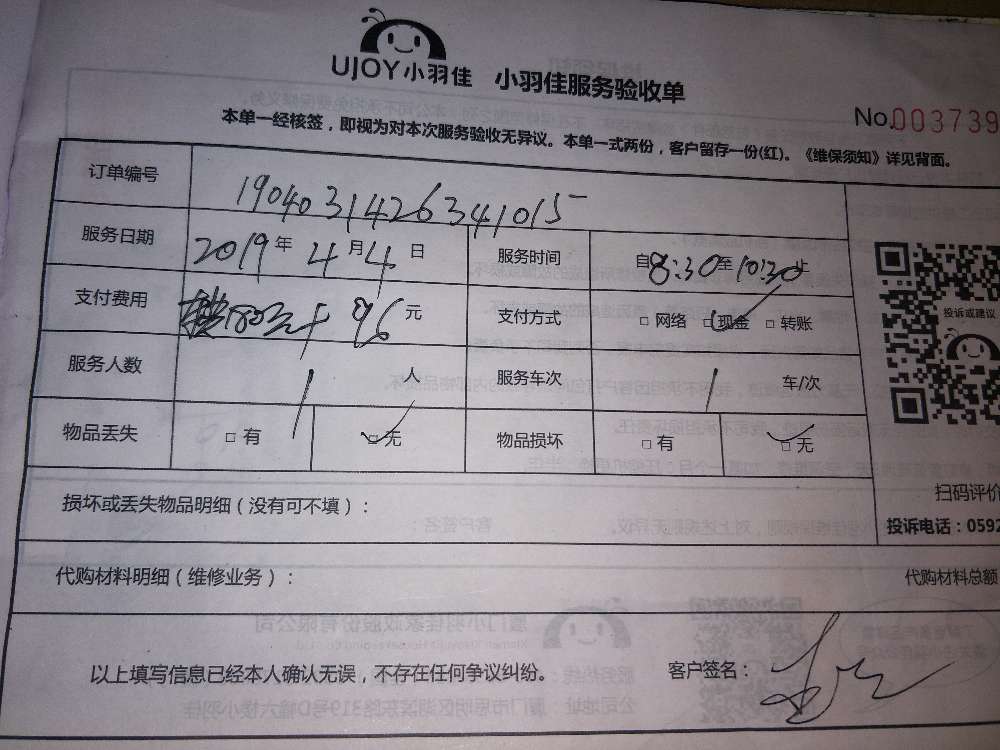 UJOY小羽佳 小羽佳服务验收单
No.003739
本单一经核签，即视为对本次服务验收无异议。本单一式两份，客户留存一份(红)。《维保须知》详见背面。
订单编号 1904031426341015
服务日期 2019年4月4日 服务时间 自8:30至10:30止
支付费用 96元 支付方式 □网络 □现金 □转账
投诉或建议
服务人数 1人 服务车次 1车/次
物品丢失 □有 □无 物品损坏 □有 □无
扫码评价
损坏或丢失物品明细（没有可不填）：
投诉电话：0592
代购材料明细（维修业务）： 代购材料总额
以上填写信息已经本人确认无误，不存在任何争议纠纷。 客户签名：